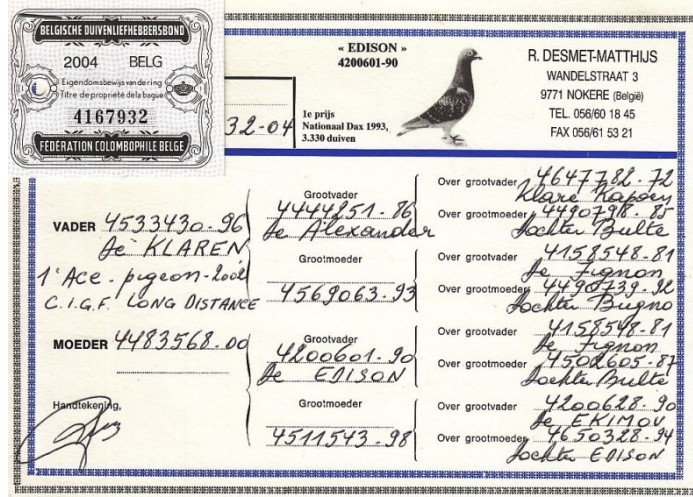 BELGISCHE DUIVENLIEFHEBBERSBOND
2004 BELG
Eigendomsbewijs van de ring
Titre de propriété de la bague
4167932
FEDERATION COLOMBOPHILE BELGE
32-04
« EDISON »
4200601-90
1e prijs
Nationaal Dax 1993,
3.330 duiven
R. DESMET-MATTHIJS
WANDELSTRAAT 3
9771 NOKERE (België)
TEL. 056/60 18 45
FAX 056/61 53 21
VADER 4533430-96
De KLAREN
1° Ace-pigeon-2002
C.I.G.F. LONG DISTANCE
MOEDER 4483568-00
Handtekening,
Grootvader
4444251-86
De Alexander
Grootmoeder
4569063-93
Grootvader
4200601-90
De EDISON
Grootmoeder
4511543-98
Over grootvader 4647782-72
Klare Kapoen
Over grootmoeder 4490798-85
Dochter Bulte
Over grootvader 4158548-81
De Fignon
Over grootmoeder 4490739-92
Dochter Bugno
Over grootvader 4158548-81
De Fignon
Over grootmoeder 4502605-87
Dochter Bulte
Over grootvader 4200628-90
De EKIMOV
Over grootmoeder 4650328-94
Dochter EDISON